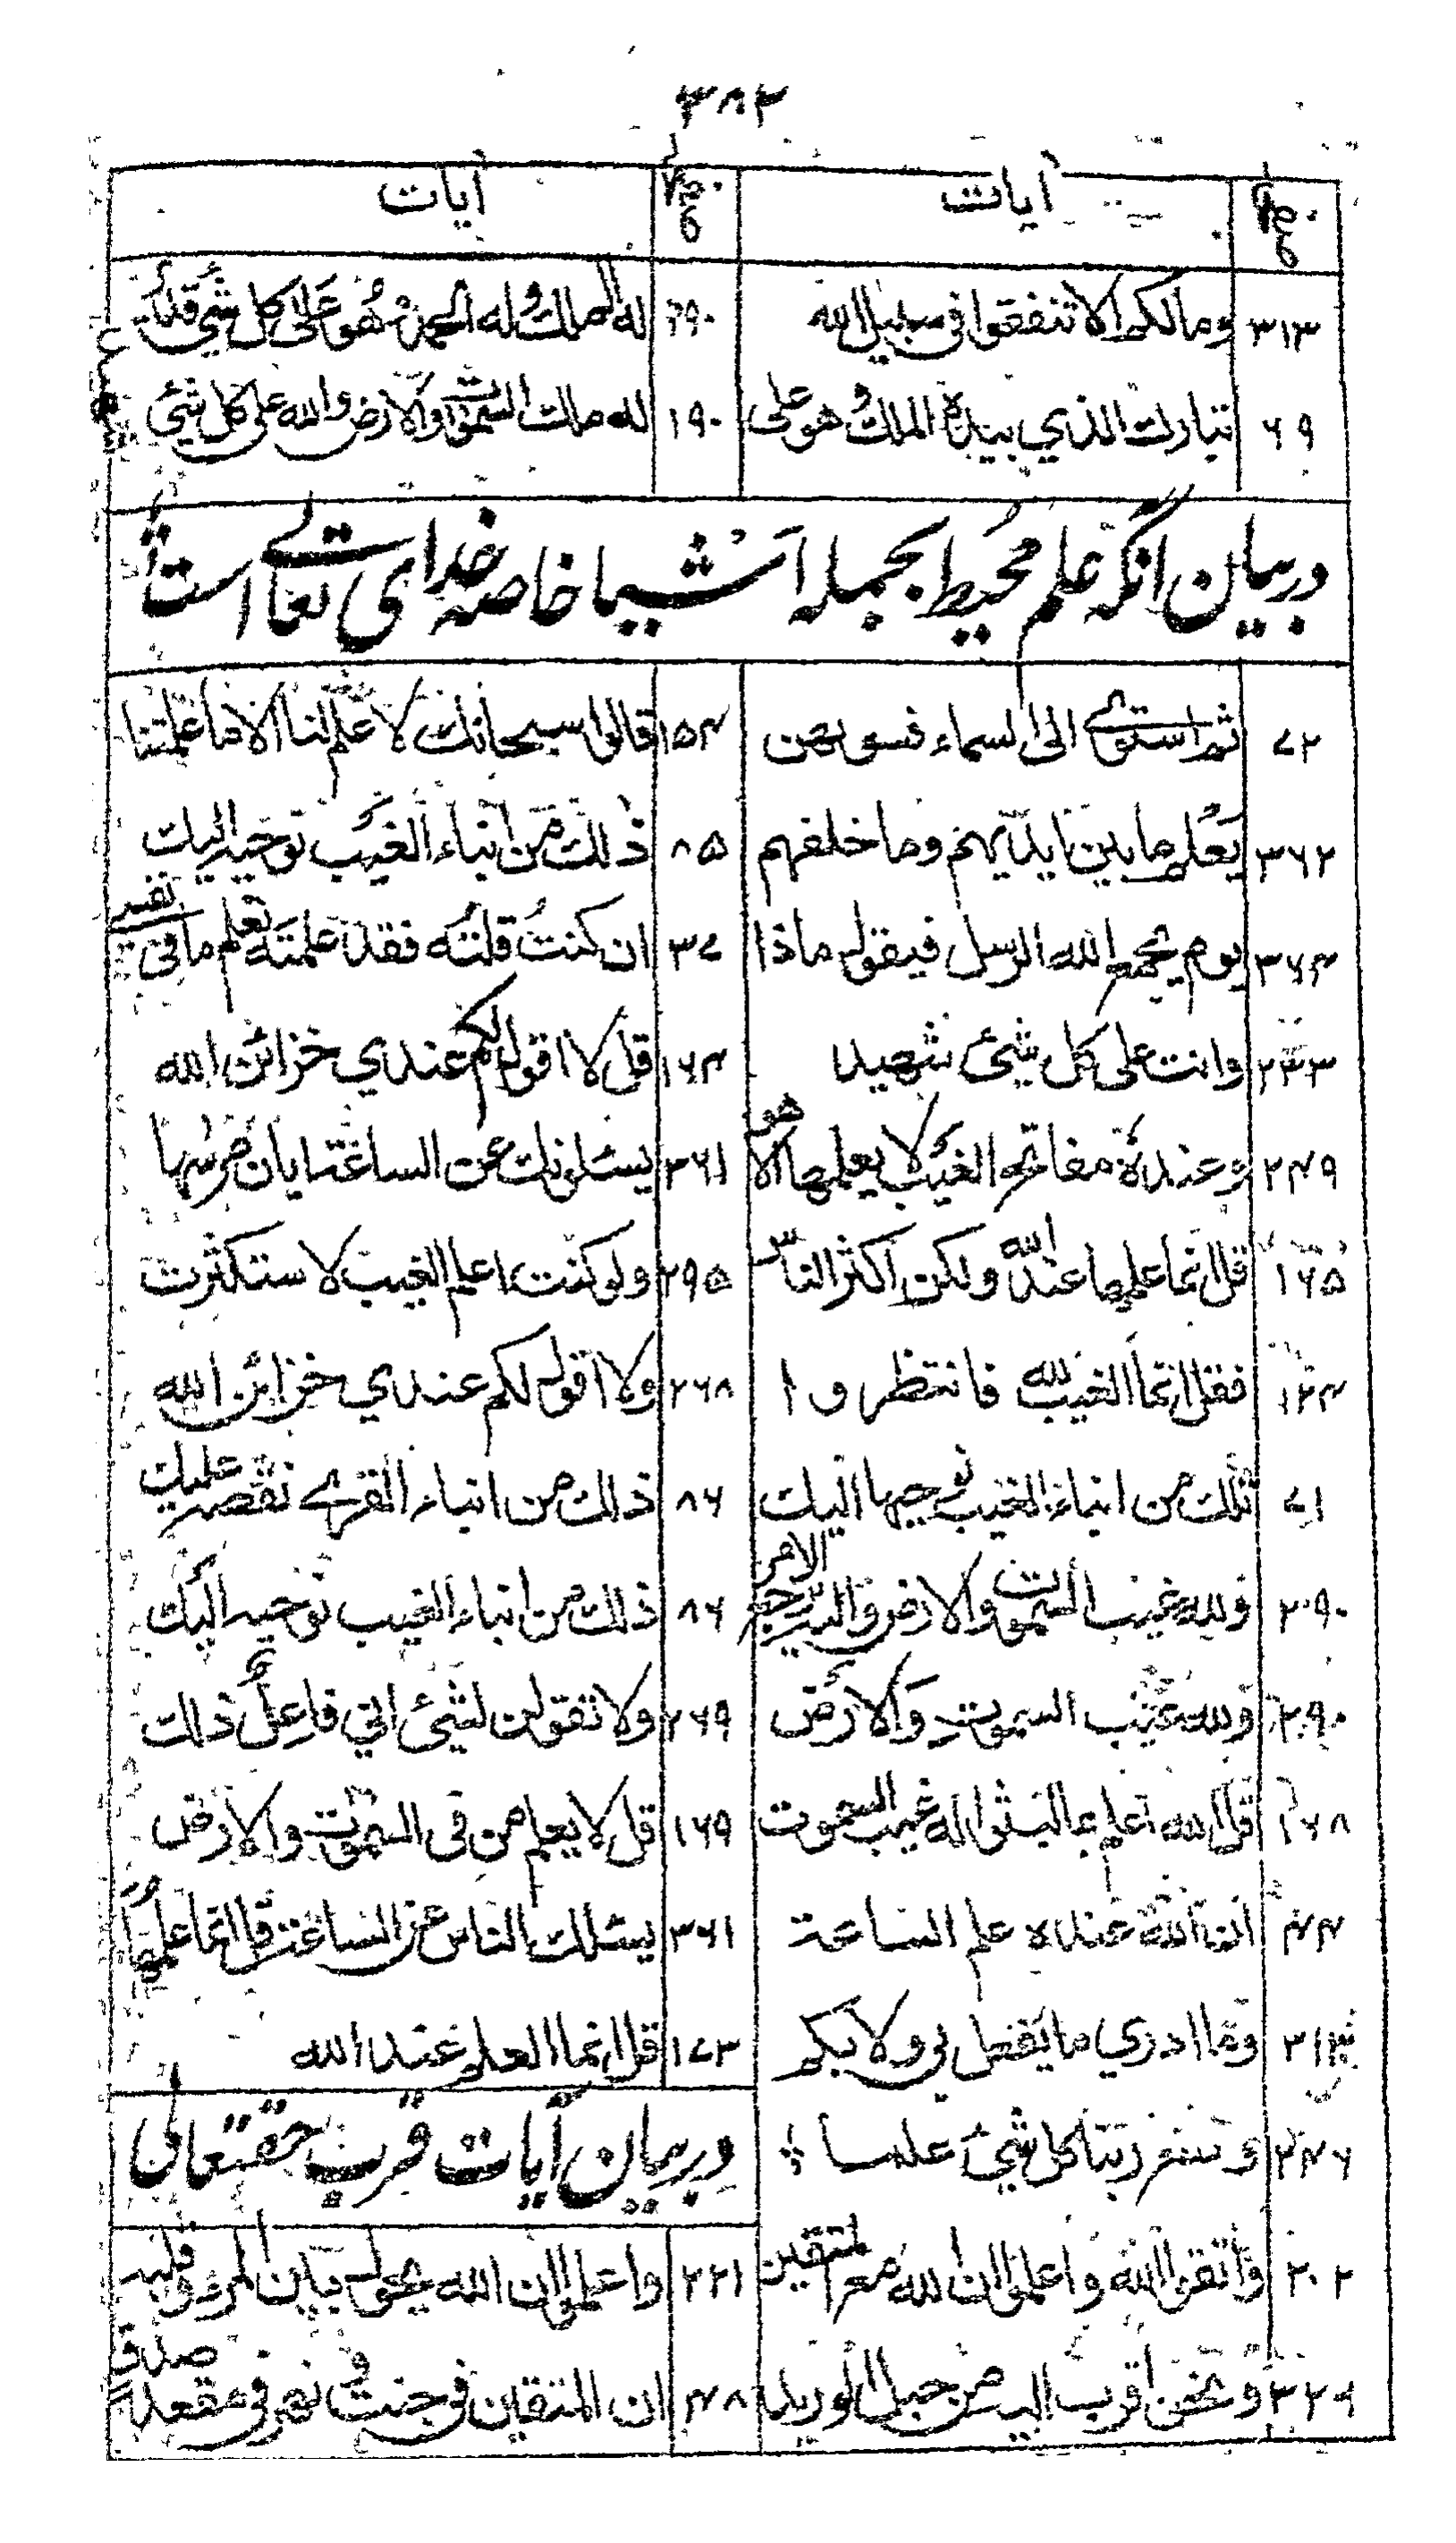 ۳۸۲
صفحه آیات صفحه آیات
۳۱۳ وما لكم الا تنفقوا فى سبيل الله ۲۹۰ له الملك وله الحمد وهو على كل شيء قدير
۶۹ تبارك الذي بيده الملك وهو على ۱۹۰ لله ملك السموات والارض والله على كل شيئ
در بیان آنکه علم محیط بجمله اشیا خاصه خدای تعالے است
۷۲ ثم استوے الى السماء فسوىهن ۱۵۴ قالوا سبحانك لا علم لنا الا ما علمتنا
۳۶۲ يعلم ما بين ايديهم وما خلفهم ۸۵ ذلك من انباء الغيب نوحيه اليك
۳۶۴ يوم يجمع الله الرسل فيقول ماذا ۳۷ ان كنت قلته فقد علمته تعلم ما فى نفسے
۲۳۳ وانت على كل شيئ شهيد ۱۶۴ قل لا اقول لكم عندي خزائن الله
۲۴۹ وعنده مفاتح الغيب لا يعلمها الا هو ۳۶۱ يسئلونك عن الساعة ايان مرسها
۱۶۵ قل انما علمها عند الله ولكن اكثر الناس ۲۹۵ ولو كنت اعلم الغيب لاستكثرت
۱۲۴ فقل انما الغيب لله فانتظروا ۲۶۸ ولا اقول لكم عندي خزائن الله
۷۱ تلك من انباء الغيب نوحيها اليك ۸۶ ذلك من انباء القرے نقصه عليك
۲۹۰ ولله غيب السموات والارض واليه يرجع الامر ۸۶ ذلك من انباء الغيب نوحيه اليك
۲۹۰ ولله غيب السموت والارض ۲۶۹ ولا تقولن لشيئ انى فاعل ذلك
۱۶۸ قل الله اعلم بما لبثوا له غيب السموت ۱۶۹ قل لا يعلم من فى السموت والارض
۴۴ ان الله عنده علم الساعة ۳۶۱ يسئلك الناس عن الساعة قل انما علمها
وما ادري ما يفعل بى ولا بكم ۱۷۳ قل انما العلم عند الله
۲۴۶ وسع ربنا كل شيئ علما در بیان آیات قرب حقتعالی
۲۰۲ واتقوا الله واعلموا ان الله مع المتقين ۲۲۱ واعلموا ان الله يحول بين المرء وقلبه
۳۲۹ ونحن اقرب اليه من حبل الوريد ۴۸ ان المتقين فى جنت ونهر فى مقعد صدق